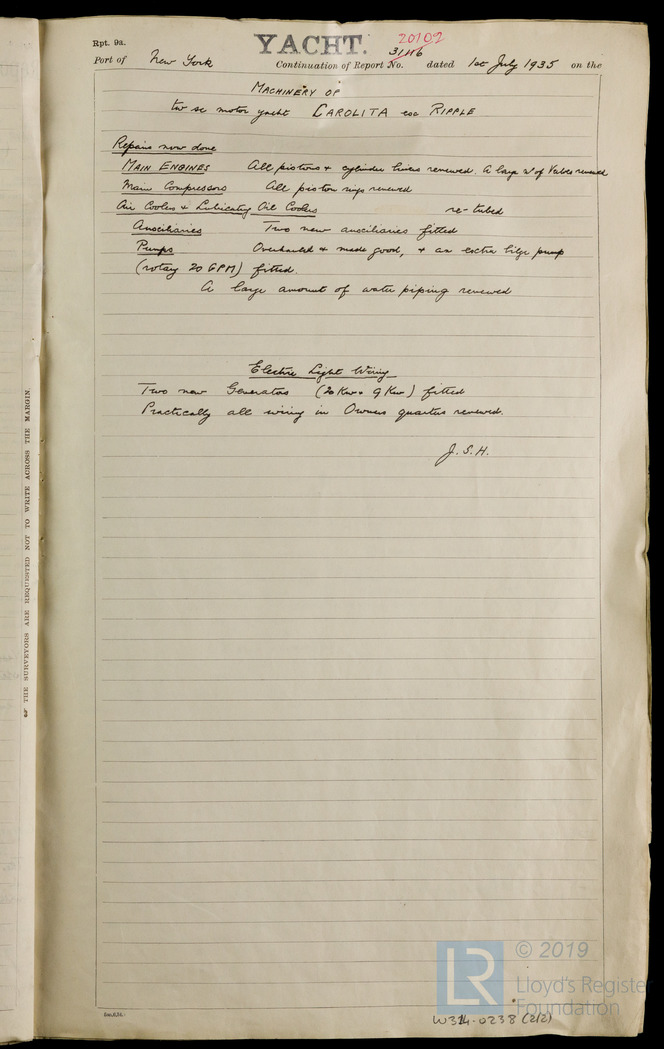 Rpt. 9a.
YACHT.
20102
31416
Port of New York Continuation of Report No. dated 1st July 1935 on the
MACHINERY OF
tw sc motor yacht CAROLITA exc RIPPLE
Repairs now done
MAIN ENGINES All pistons + cylinder liners renewed. A large No of Valves renewed
Main Compressors All piston rings renewed
Air Coolers & Lubricatg Oil Coolers re-tubed
Auxiliaries Two new auxiliaries fitted
Pumps Overhauled & made good, & an extra bilge pump
(rotary 20 GPM) fitted.
A large amount of water piping renewed
Electric Light Wiring
Two new Generators (20 Kw & 9 Kw) fitted
Practically all wiring in Owners quarters renewed.
J.S.H.
THE SURVEYORS ARE REQUESTED NOT TO WRITE ACROSS THE MARGIN.
© 2019
LR
Lloyd's Register
Foundation
W314-0238 (2/2)